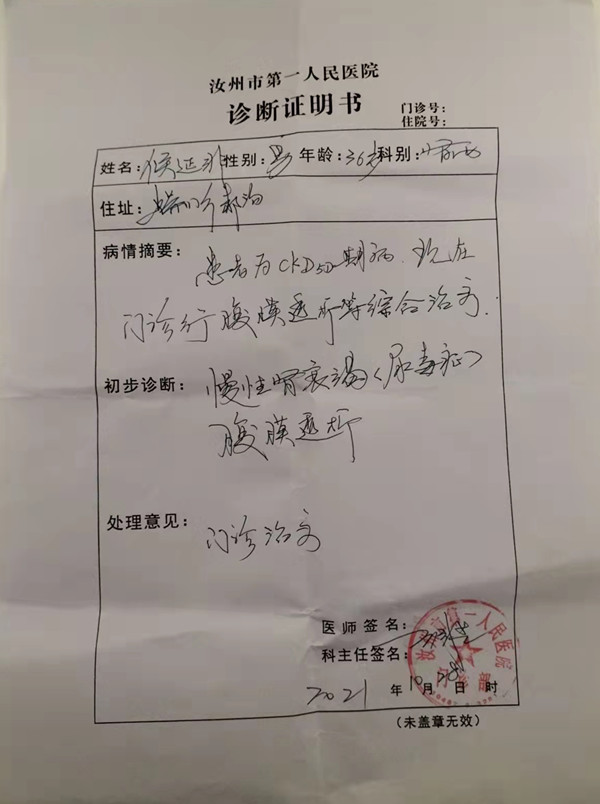 汝州市第一人民医院
诊断证明书
门诊号：
住院号：
姓名：侯延 性别：男 年龄：36岁 科别：肾内
住址：
病情摘要：患者为CKD5D期病，现在
门诊行腹膜透析等综合治疗.
初步诊断：慢性肾衰竭〈尿毒症〉
腹膜透析
处理意见：
门诊治疗
医师签名：
科主任签名：
2021 年 10 月 28 日 时
（未盖章无效）
第一人民医院